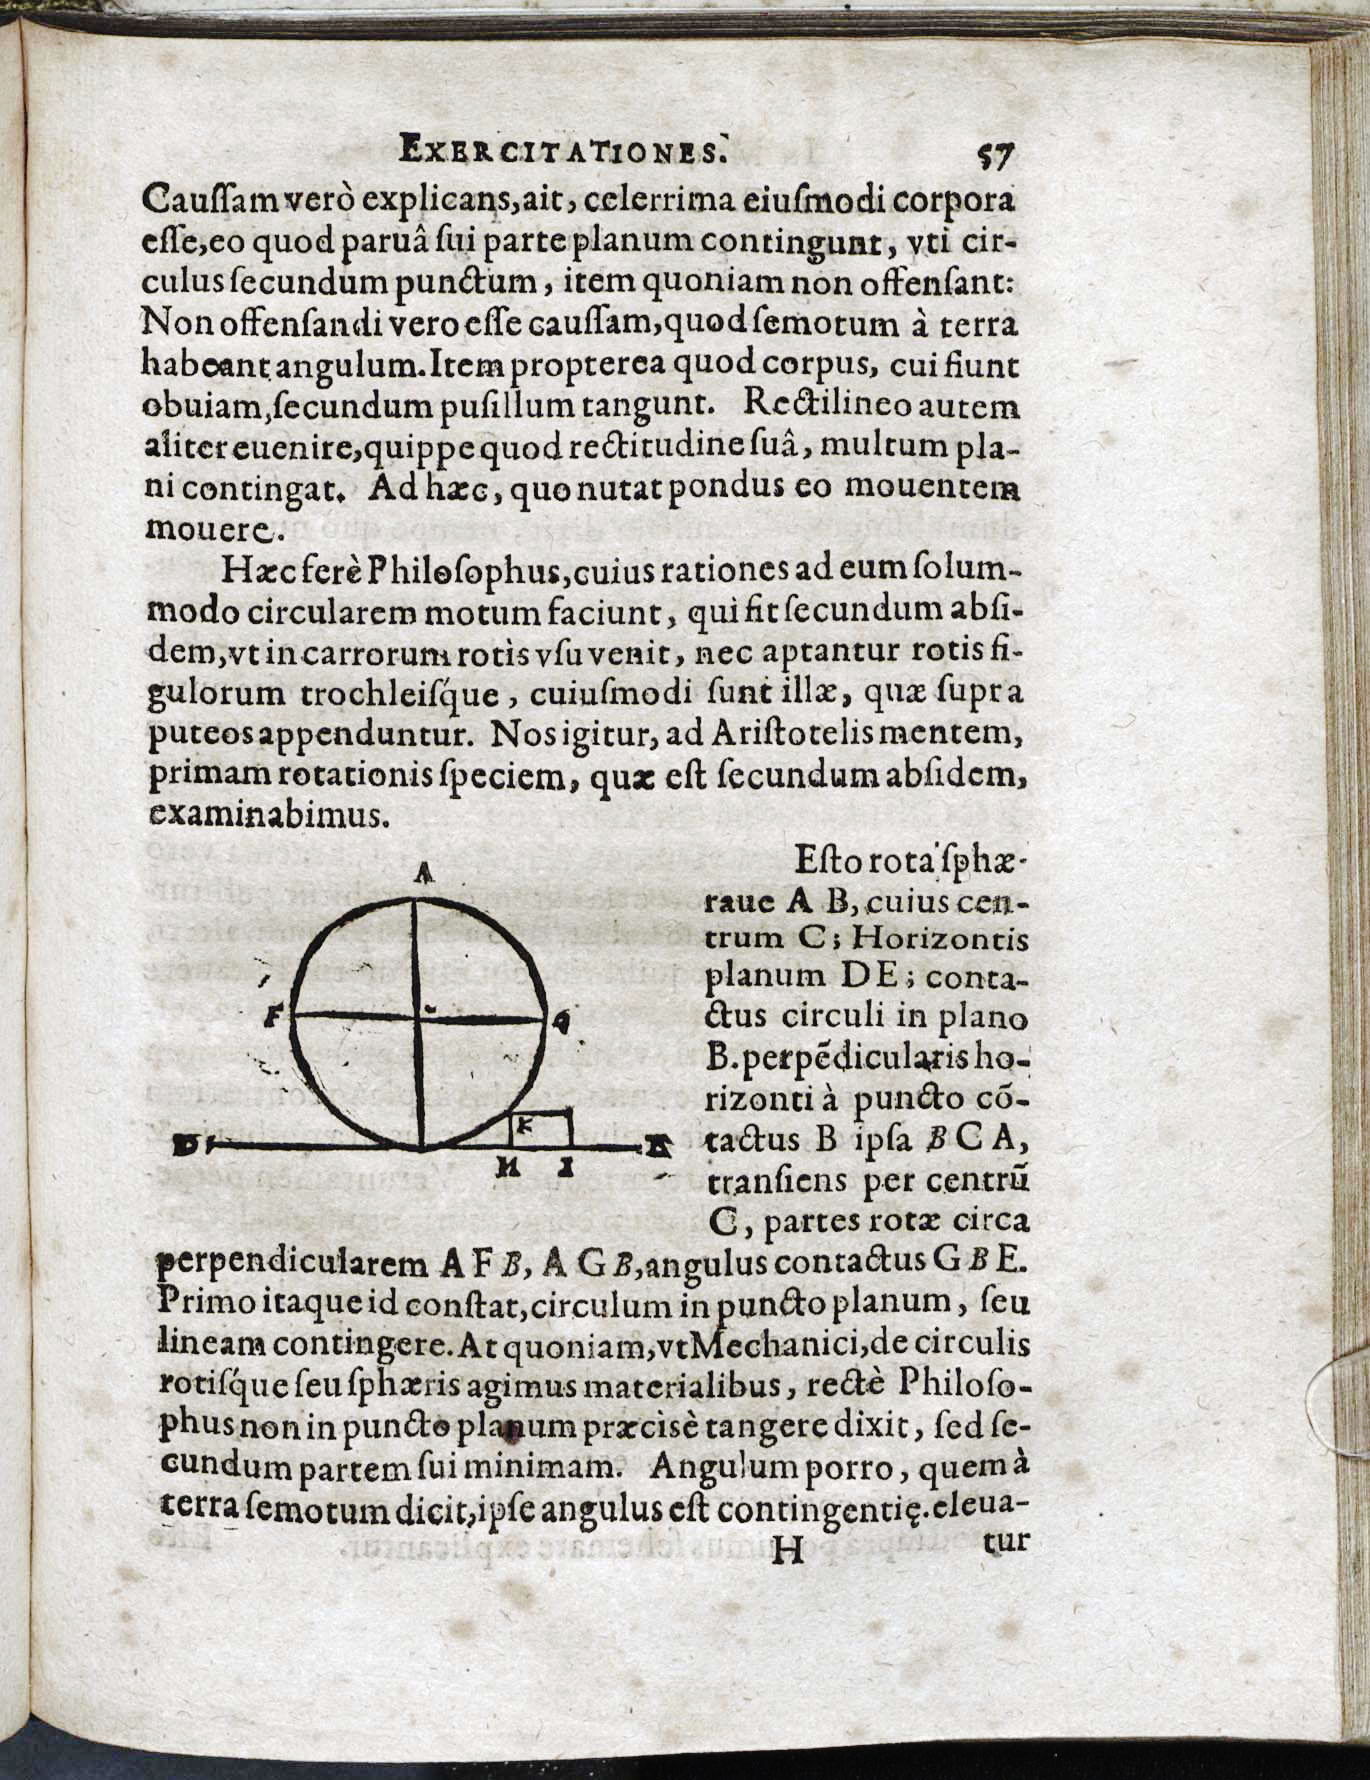 EXERCITATIONES. 57
Cauſſam verò explicans, ait, celerrima eiuſmodi corpora
eſſe, eo quod paruâ ſui parte planum contingunt, vti cir-
culus ſecundum punctum, item quoniam non offenſant:
Non offenſandi vero eſſe cauſſam, quod ſemotum à terra
habeant angulum. Item propterea quod corpus, cui fiunt
obuiam, ſecundum puſillum tangunt. Rectilineo autem
aliter euenire, quippe quod rectitudine ſuâ, multum pla-
ni contingat. Ad hæc, quo nutat pondus eo mouentem
mouere.
Hæc ferè Philoſophus, cuius rationes ad eum ſolum-
modo circularem motum faciunt, qui fit ſecundum abſi-
dem, vt in carrorum rotis vſu venit, nec aptantur rotis fi-
gulorum trochleiſq́ue, cuiuſmodi ſunt illæ, quæ ſupra
puteos appenduntur. Nos igitur, ad Ariſtotelis mentem,
primam rotationis ſpeciem, quæ eſt ſecundum abſidem,
examinabimus.
Eſto rota ſphæ-
raue A B, cuius cen-
trum C; Horizontis
planum DE; conta-
ctus circuli in plano
B. perpẽdicularis ho-
rizonti à puncto cõ-
tactus B ipſa B C A,
tranſiens per centrũ
C, partes rotæ circa
A
F
G
K
D
E
H I
perpendicularem A F B, A G B, angulus contactus G B E.
Primo itaque id conſtat, circulum in puncto planum, ſeu
lineam contingere. At quoniam, vt Mechanici, de circulis
rotiſq́ue ſeu ſphæris agimus materialibus, rectè Philoſo-
phus non in puncto planum præcisè tangere dixit, ſed ſe-
cundum partem ſui minimam. Angulum porro, quem à
terra ſemotum dicit, ipſe angulus eſt contingentię. eleua-
H tur